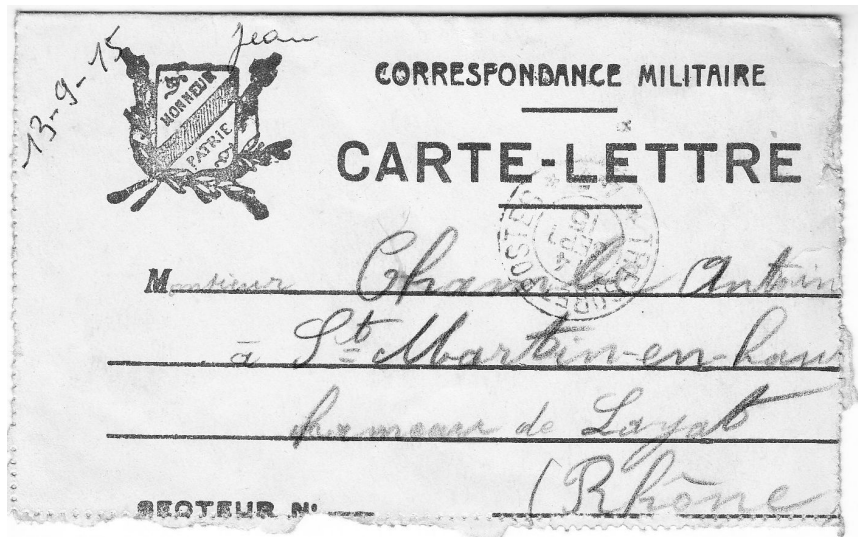 13-9-15 Jean
HONNEUR
PATRIE
CORRESPONDANCE MILITAIRE
CARTE-LETTRE
TRESOR ET POSTES
Monsieur Chambe Antoin
à St Martin-en-hau
hameau de Layat
(Rhône
SECTEUR N°